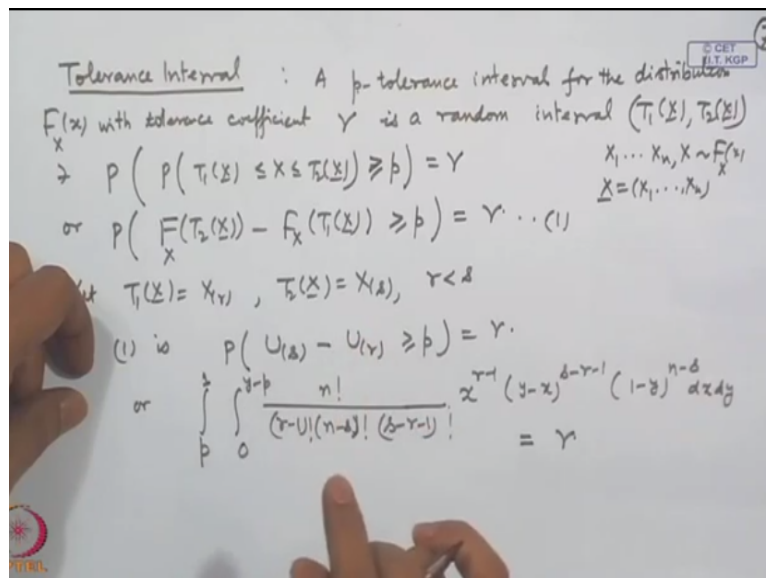 © CET
I.I.T. KGP
Tolerance Interval : A p-tolerance interval for the distribution
F_X(x) with tolerance coefficient γ is a random interval (T₁(X̲), T₂(X̲))
∋ P( P( T₁(X̲) ≤ X ≤ T₂(X̲)) ≥ p ) = γ
X₁ ... Xₙ, X ~ F_X(x)
X̲ = (X₁, ..., Xₙ)
or P( F_X(T₂(X̲)) - F_X(T₁(X̲)) ≥ p ) = γ ... (1)
T₁(X̲) = X₍ᵣ₎ , T₂(X̲) = X₍ₛ₎, r < s
(1) is P( U₍ₛ₎ - U₍ᵣ₎ ≥ p ) = γ.
or ∫_p^1 ∫_0^{y-p} n! / ((r-1)! (n-s)! (s-r-1)!) x^{r-1} (y-x)^{s-r-1} (1-y)^{n-s} dx dy
= γ